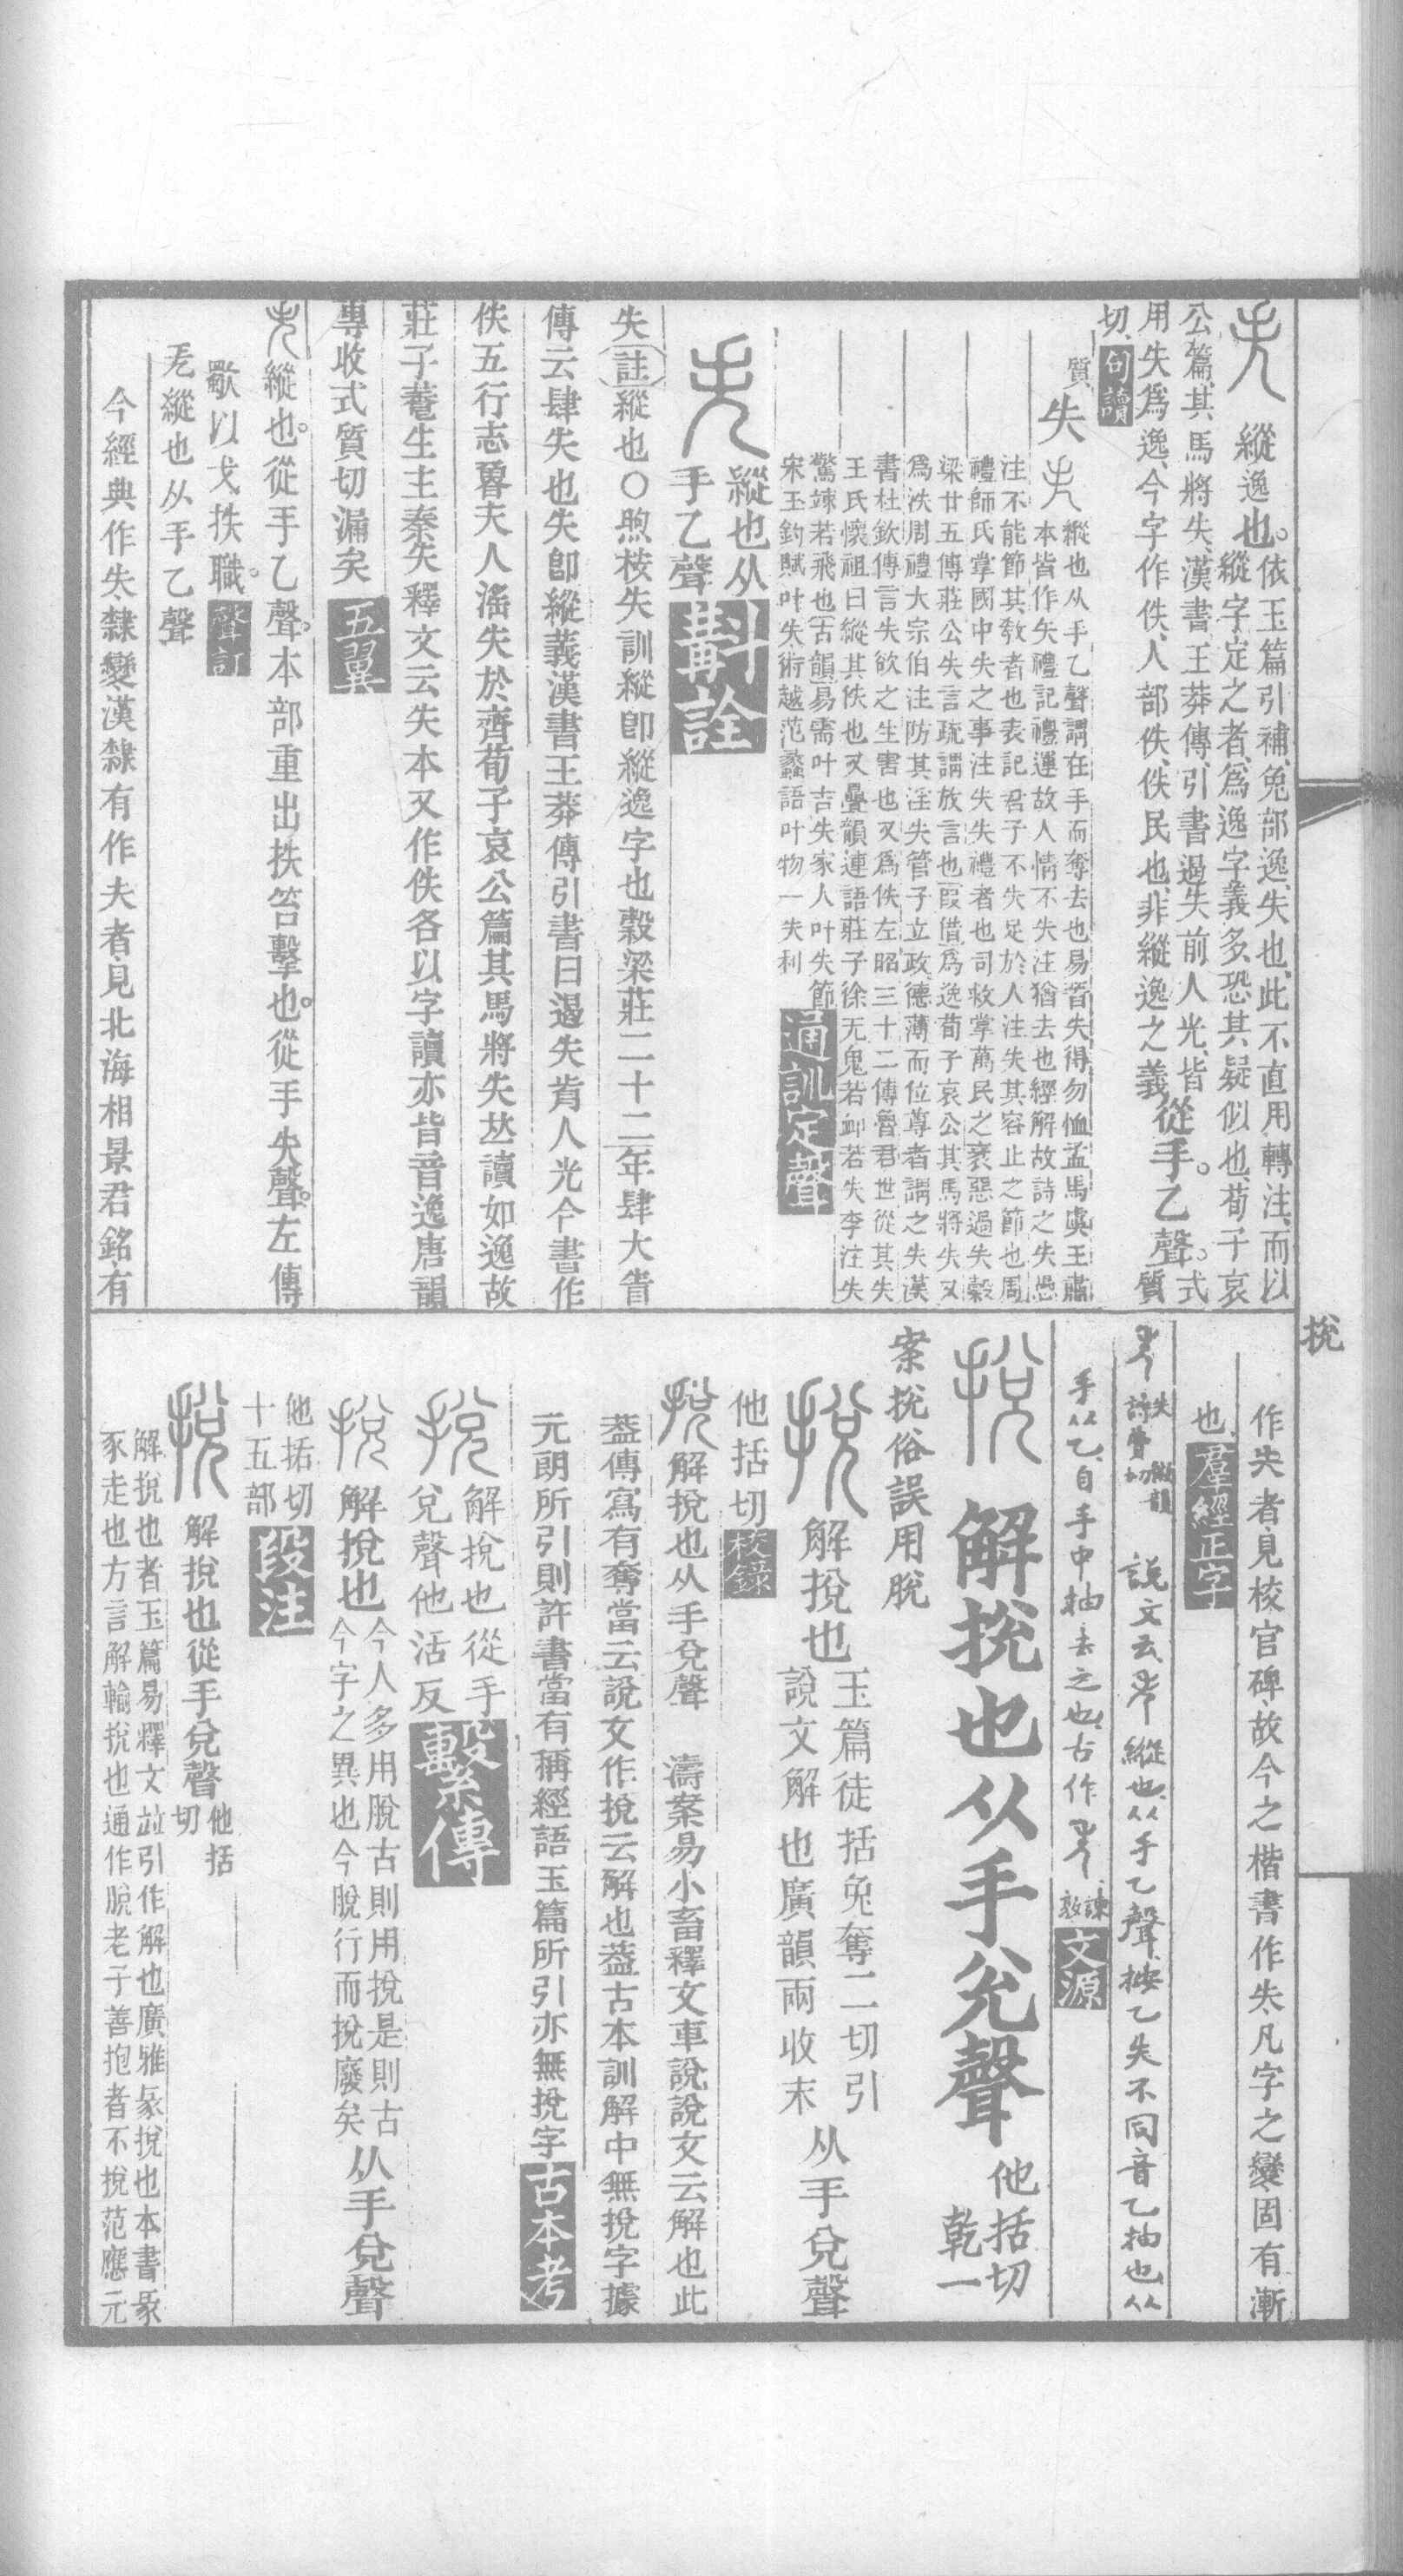 縱逸也。依玉篇引補、兔部逸、失也、此不直用轉注、而以
縱字定之者、爲逸字義多、恐其疑似也、荀子哀
公篇、其馬將失、漢書王莽傳、引書遏失前人光、皆
用失爲逸、今字作佚、人部佚、佚民也、非縱逸之義、從手。乙聲。式質
切、句讀
失
縱也从手乙聲謂在手而奪去也易晉失得勿恤孟馬虞王肅
本皆作矢禮記禮運故人情不失注猶去也經解故詩之失愚
注不能節其敎者也表記君子不失足於人注失其容止之節也周
禮師氏掌國中失之事注失失禮者也司救掌萬民之衺惡過失穀
梁廿五傳莊公失言疏謂放言也叚借爲逸荀子哀公其馬將失又
爲泆周禮大宗伯注防其淫失管子立政德薄而位尊者謂之失漢
書杜欽傳言失欲之生害也又爲佚左昭三十二傳魯君世從其失
王氏懷祖曰縱其佚也又疊韻連語莊子徐无鬼若卹若失李注失
驚竦若飛也古韻易需叶吉失家人叶失節
宋玉釣賦叶失術越范蠡語叶物一失利
通訓定聲
縱也从
手乙聲
斠詮
失註縱也○煦桉失訓縱卽縱逸字也穀梁莊二十二年肆大眚
傳云肆失也失卽縱義漢書王莽傳引書曰遏失前人光今書作
佚五行志晷夫人淫失於齊荀子哀公篇其馬將失竝讀如逸故
莊子養生主秦失釋文云失本又作佚各以字讀亦皆音逸唐韻
專收式質切漏矣五翼
縱也。從手乙聲。本部重出抶笞擊也。從手失聲。左傳
歜以戈抶職。聲訂
縱也从手乙聲
今經典作失隸變漢隸有作夫者見北海相景君銘有
捝
作失者見校官碑故今之楷書作失凡字之變固有漸
也羣經正字
說文云 縱也从手乙聲按乙失不同音乙抽也从
手从乙自手中抽去之也古作 諫敦文源
解捝也从手兌聲他括切
乾一
案捝俗誤用脫
解捝也玉篇徒括兔奪二切引
說文解也廣韻兩收末从手兌聲
他括切校錄
解捝也从手兌聲 濤案易小畜釋文車說說文云解也此
葢傳寫有奪當云說文作捝云解也葢古本訓解中無捝字據
元朗所引則許書當有稱經語玉篇所引亦無捝字古本考
解捝也從手
兌聲他活反
繫傳
解捝也今人多用脫古則用捝是則古
今字之異也今脫行而捝廢矣从手兌聲
他括切
十五部
段注
解捝也從手兌聲他括
切
解捝也者玉篇易釋文竝引作解也廣雅彖捝也本書彖
豕走也方言解輸捝也通作脫老子善抱者不捝范應元